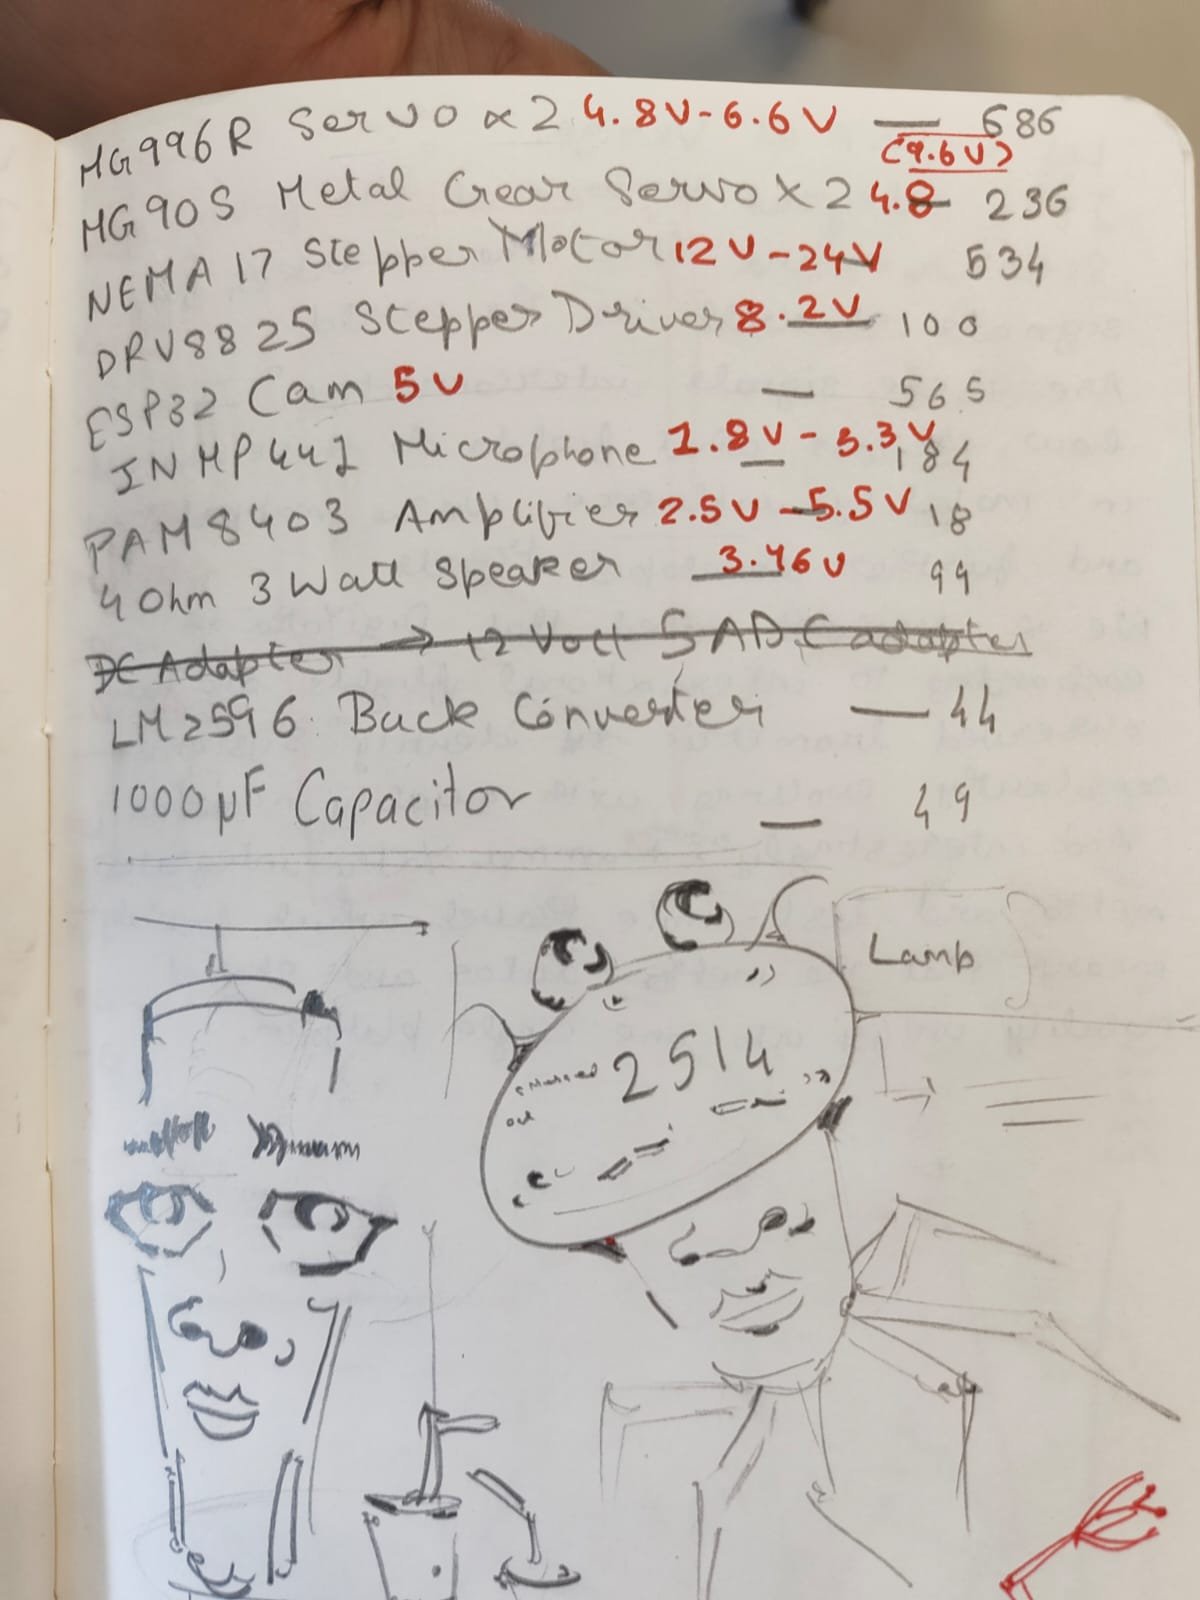 MG996R Servo x2 4.8V-6.6V — 686
(9.6V)
MG90S Metal Gear Servo x2 4.8 — 236
NEMA 17 Stepper Motor 12V-24V 534
DRV8825 Stepper Driver 8.2V 100
ESP32 Cam 5V — 565
INMP441 Microphone 1.8V - 3.3V 184
PAM8403 Amplifier 2.5V - 5.5V 18
4 Ohm 3 Watt Speaker — 3.46V 99
DC Adapter → 12 Volt 5 A DC adapter
LM2596 Buck Converter — 44
1000µF Capacitor — 49
Lamp
2514
out